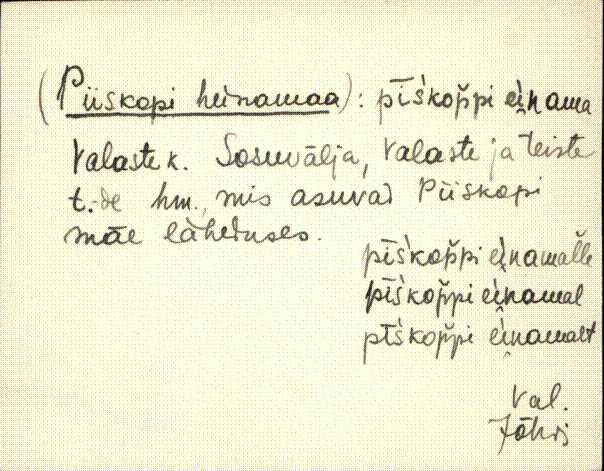 (Piiskopi heinamaa): pīśkop̆pi ei̯nama
Valaste k. Sosuvälja, Valaste ja teiste
t.-de hm., mis asuvad Piiskopi
mäe läheduses.
pīśkop̆pi ei̯namal̆le
pīśkop̆pi ei̯namal
pīśkop̆pi ei̯namalt
Val.
Jõhvi